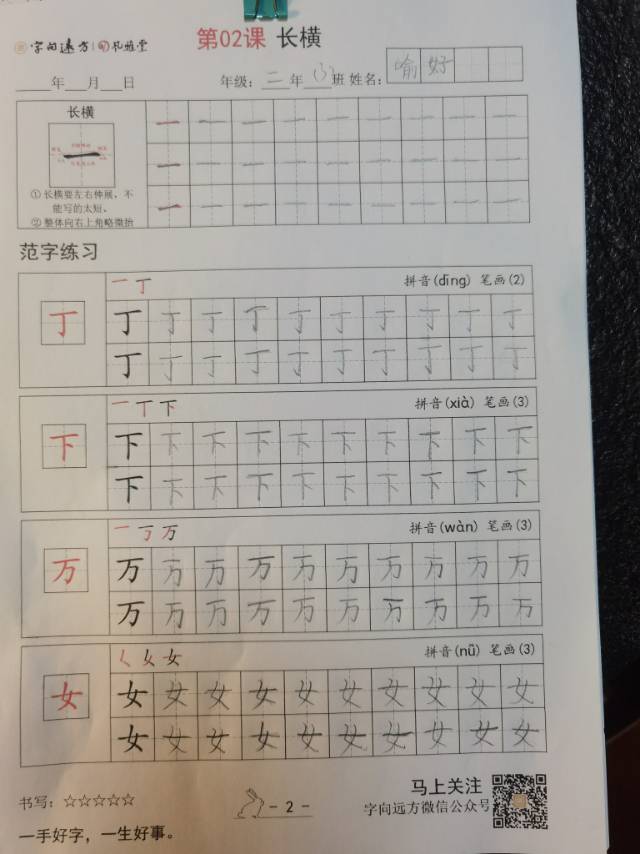 字向远方 | 凡雅堂
第02课 长横
____年___月___日
年级：二年(3)班 姓名：喻好
长横
①长横要左右伸展，不
能写的太短。
②整体向右上角略微抬
一 一 一 一 一 一 一 一 一
一 一 一 一 一 一 一 一 一
一 一 一 一 一 一 一 一 一
范字练习
一 丁 拼音(dīng) 笔画(2)
丁 丁 丁 丁 丁 丁 丁 丁 丁 丁 丁
丁 丁 丁 丁 丁 丁 丁 丁 丁 丁
一 丅 下 拼音(xià) 笔画(3)
下 下 下 下 下 下 下 下 下 下 下
下 下 下 下 下 下 下 下 下 下
一 丂 万 拼音(wàn) 笔画(3)
万 万 万 万 万 万 万 万 万 万 万
万 万 万 万 万 万 万 万 万 万
く 乆 女 拼音(nǚ) 笔画(3)
女 女 女 女 女 女 女 女 女 女 女
女 女 女 女 女 女 女 女 女 女
书写：☆☆☆☆☆
- 2 -
马上关注
字向远方微信公众号
一手好字，一生好事。